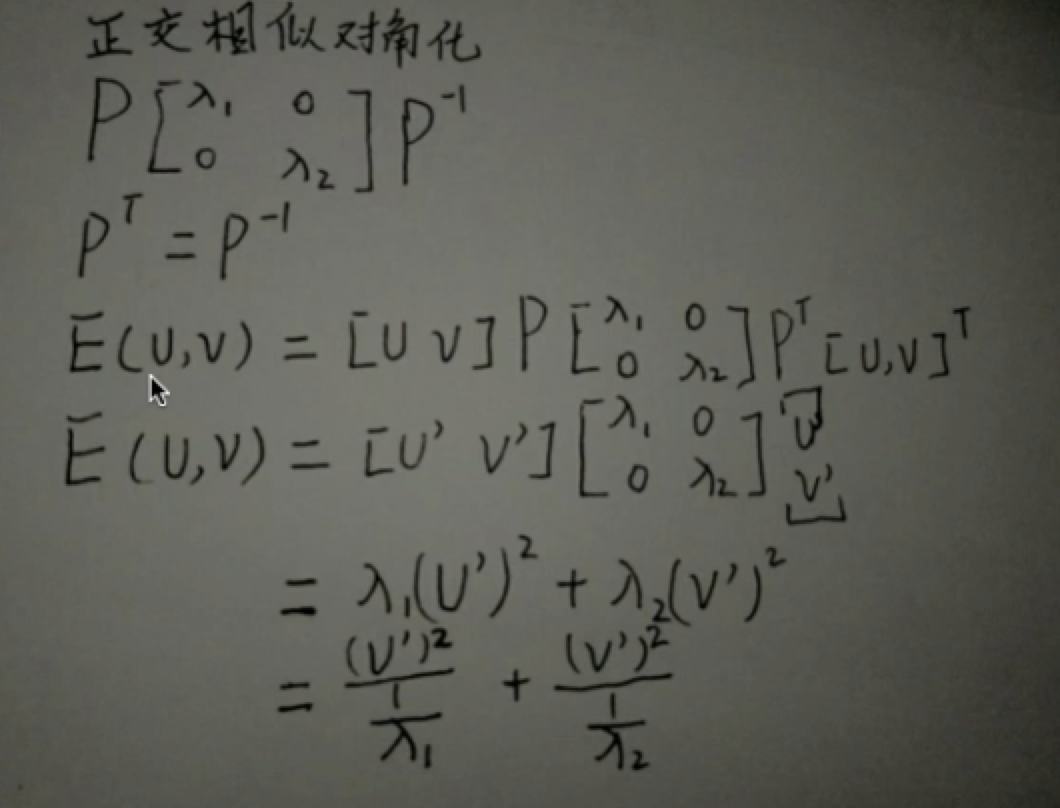 正交相似对角化
P [λ₁ 0; 0 λ₂] P⁻¹
Pᵀ = P⁻¹
E(U,V) = [U V] P [λ₁ 0; 0 λ₂] Pᵀ [U,V]ᵀ
E(U,V) = [U' V'] [λ₁ 0; 0 λ₂] [U; V']
= λ₁(U')² + λ₂(V')²
= (V')²/(1/λ₁) + (V')²/(1/λ₂)